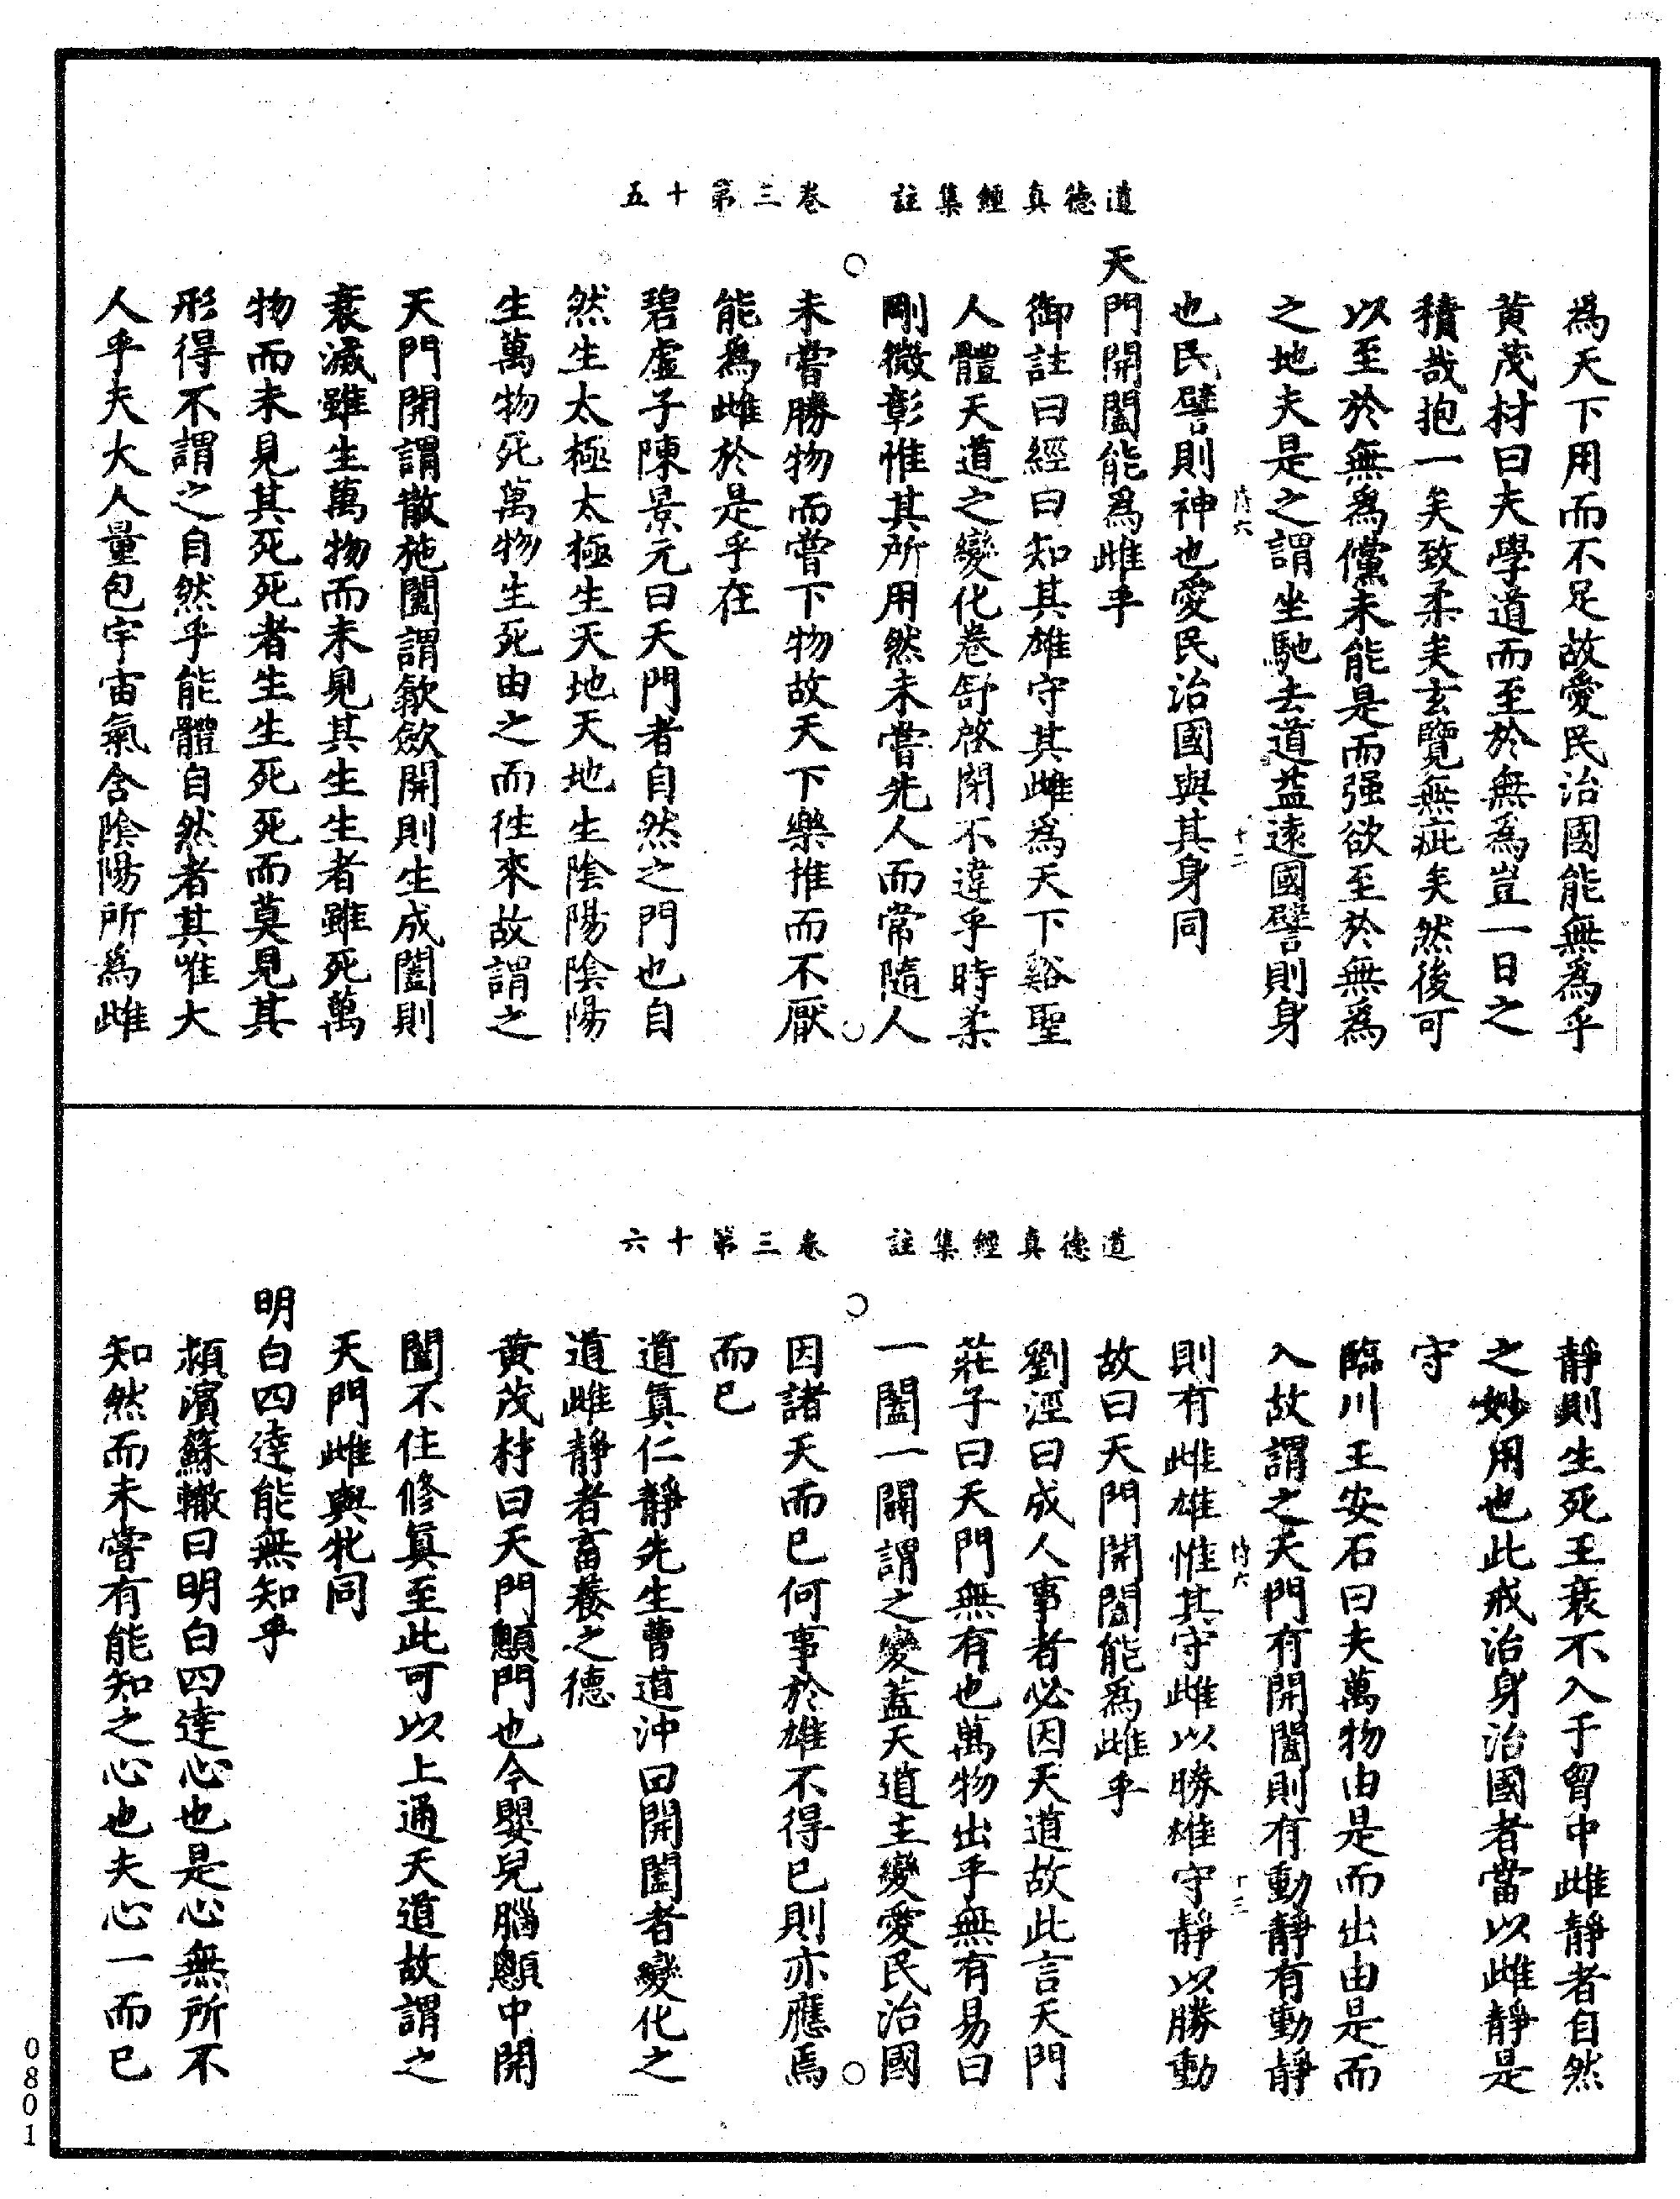 道德真經集註　卷三第十五
為天下用而不足故愛民治國能無為乎
黄茂材曰夫學道而至於無為豈一日之
積哉抱一矣致柔矣玄覽無疵矣然後可
以至於無為儻未能是而强欲至於無為
之地夫是之謂坐馳去道益遠國譬則身
也民譬則神也愛民治國與其身同
天門開闔能為雌乎
御註曰經曰知其雄守其雌為天下谿聖
人體天道之變化卷舒啓閉不違乎時柔
剛微彰惟其所用然未嘗先人而常隨人
未嘗勝物而嘗下物故天下樂推而不厭
能為雌於是乎在
碧虛子陳景元曰天門者自然之門也自
然生太極太極生天地天地生陰陽陰陽
生萬物死萬物生死由之而徃來故謂之
天門開謂散施闔謂歙斂開則生成闔則
衰滅雖生萬物而未見其生生者雖死萬
物而未見其死死者生生死死而莫見其
形得不謂之自然乎能體自然者其唯大
人乎夫大人量包宇宙氣含陰陽所為雌
道德真經集註　卷三第十六
靜則生死王衰不入于胷中雌靜者自然
之妙用也此戒治身治國者當以雌靜是
守
臨川王安石曰夫萬物由是而出由是而
入故謂之天門有開闔則有動靜有動靜
則有雌雄惟其守雌以勝雄守靜以勝動
故曰天門開闔能為雌乎
劉涇曰成人事者必因天道故此言天門
莊子曰天門無有也萬物出乎無有易曰
一闔一闢謂之變蓋天道主變愛民治國
因諸天而已何事於雄不得已則亦應焉
而已
道真仁靜先生曹道沖曰開闔者變化之
道雌靜者畜養之德
黄茂材曰天門顖門也今嬰兒腦顖中開
闔不住修真至此可以上通天道故謂之
天門雌與牝同
明白四達能無知乎
頴濱蘇轍曰明白四達心也是心無所不
知然而未嘗有能知之心也夫心一而已
0801